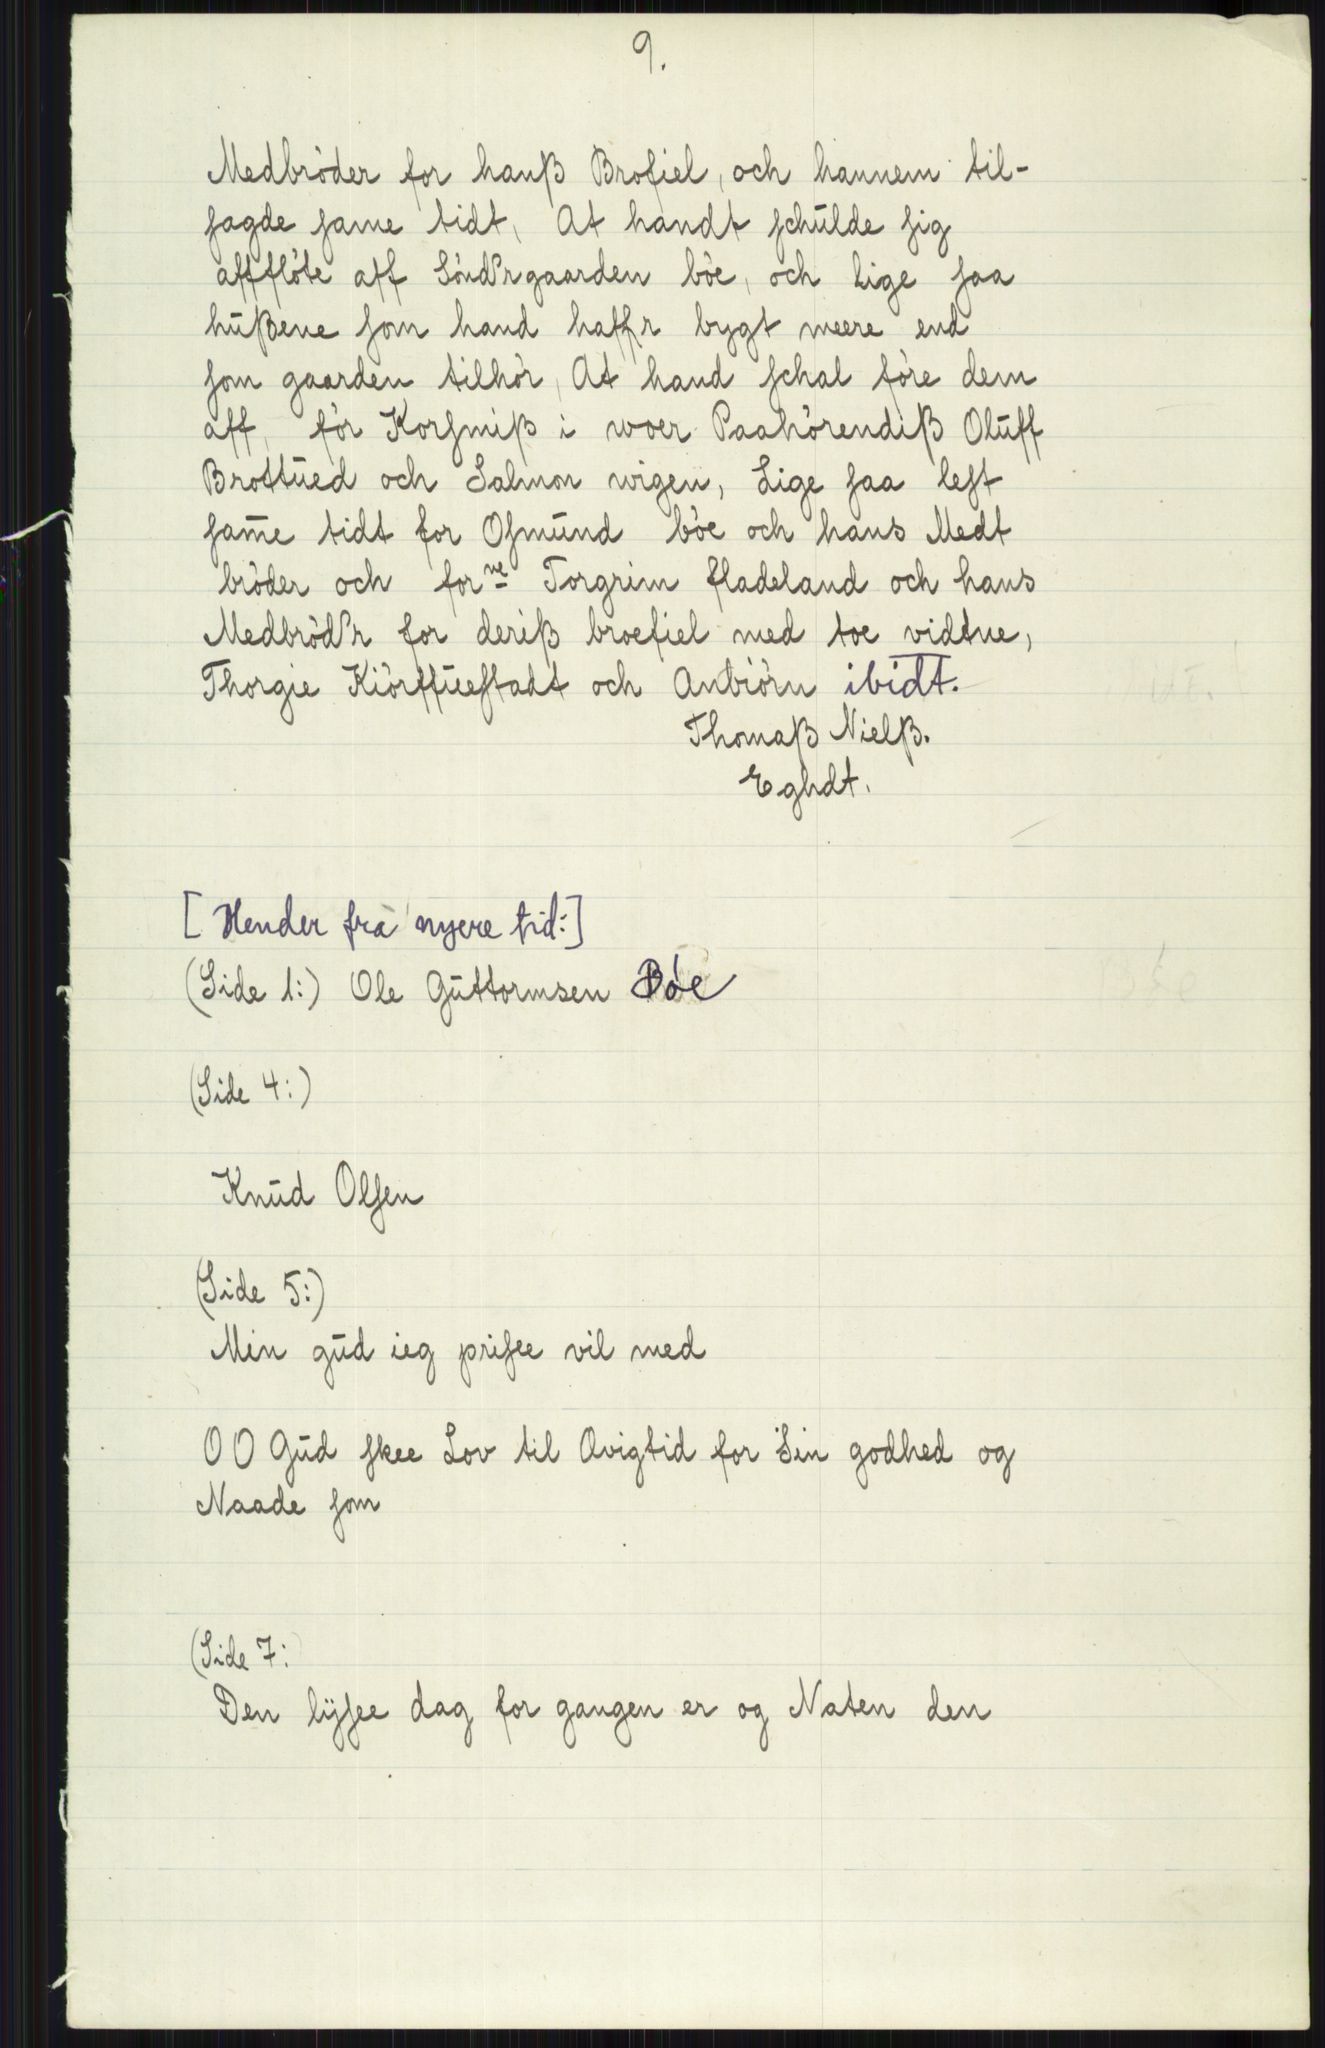 9.
Medbróder for hanß Brofiel, och hannem til-
sagde same tidt, At handt schulde sig
affflóte aff Sóndrgaarden bóe, och Lige saa
hußene som hand haffr bygt meere end
som gaarden tilhór, At hand schal fóre dem
aff, fór Korsmiß i woer Paahórendiß Oluff
Brottued och Salmon wigen, Lige saa lest
sam̄e tidt for Osmund bóe och hans Medt
bróder och forne Torgrim fladeland och hans
Medbródr for deriß broefiel med toe vidtne,
Thorgie Kiórffuestadt och Anbiórn ibidt.
Thomaß Nielß.
Eghdt.
[Hender fra nyere tid:]
(Side 1:) Ole Guttormsen Bóe
(Side 4:)
Knud Olsen
(Side 5:)
Min gud ieg prisee vil med
O O Gud skee Lov til Avigtid for Sin godhed og
Naade som
(Side 7:
Den lijsee dag for gangen er og Naten den